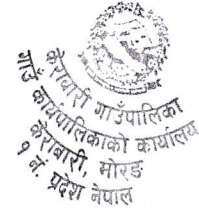 केरावारी गाउँपालिका
गाउँ कार्यपालिकाको कार्यालय
केरावारी, मोरङ
१ नं. प्रदेश नेपाल